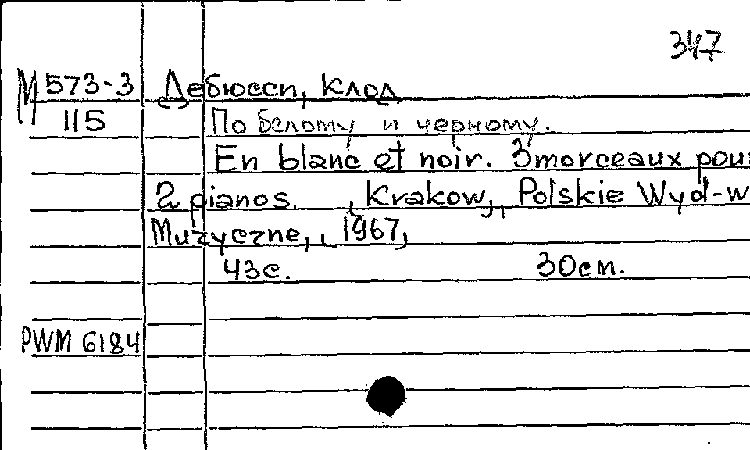 347
М 573-3 Дебюсси, Клод
115 По белому и черному.
En blanc et noir. 3 morceaux pour
2 pianos. , Krakow, , Polskie Wyd-w
Muzyczne, , 1967,
43с. 30см.
PWM 6184